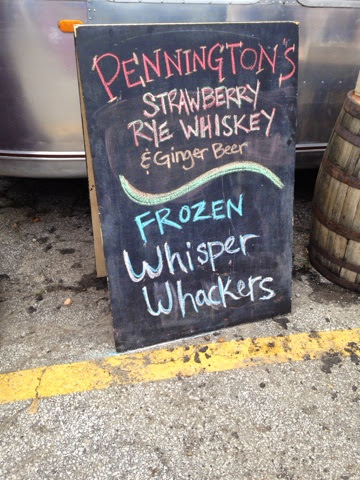 PENNINGTON'S
STRAWBERRY
RYE WHISKEY
& Ginger Beer
FROZEN
Whisper
Whackers